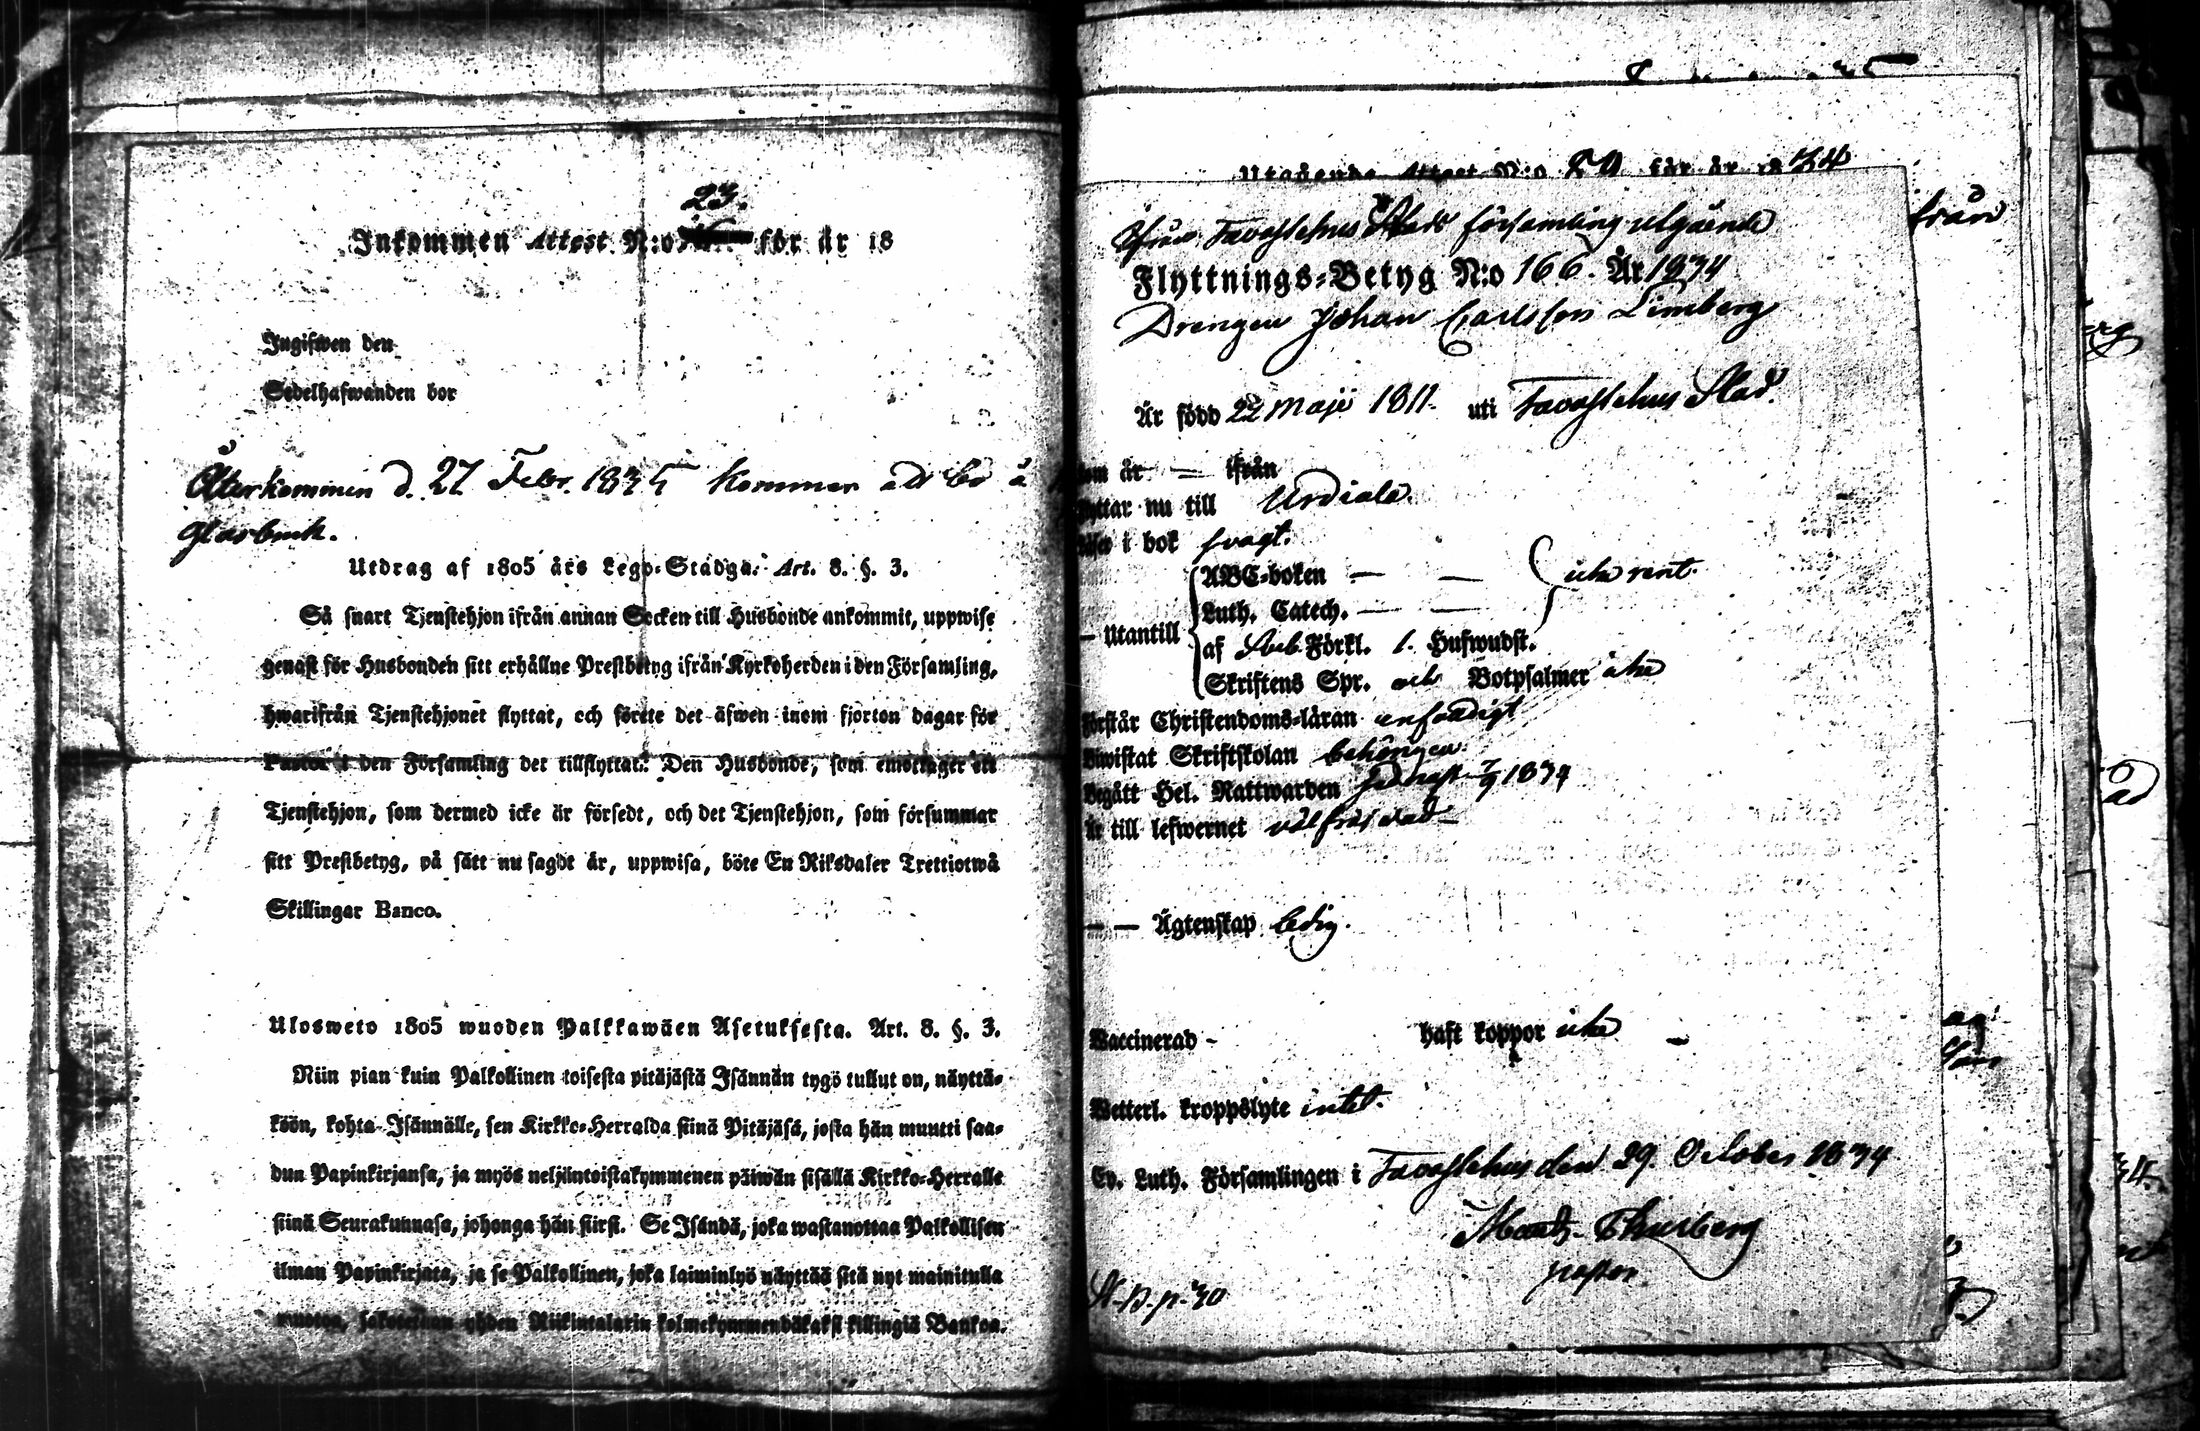 23.
Inkommen Attest N:o för år 18
Ingifwen den
Sedelhafwanden bor
Återkommen d. 27 Febr. 1835 kommer att bo å
Glasbruk.
Utdrag af 1805 års Lego-Stadga. Art. 8. §. 3.
Så snart Tjenstehjon ifrån annan Socken till Husbonde ankommit, uppwise
genast för Husbonden sitt erhållne Prestbetyg ifrån Kyrkoherden i den Församling,
hwarifrån Tjenstehjonet flyttat, och förete det äfwen inom fjorton dagar för
Pastor i den Församling det tillflyttat. Den Husbonde, som emottager ett
Tjenstehjon, som dermed icke är försedt, och det Tjenstehjon, som försummar
sitt Prestbetyg, på sätt nu sagdt är, uppwisa, böte En Riksdaler Trettiotwå
Skillingar Banco.
Ulosweto 1805 wuoden Palkkawäen Asetuksesta. Art. 8. §. 3.
Niin pian kuin Palkollinen toisesta pitäjästä Isännän tygö tullut on, näyttä-
köön, kohta Isännälle, sen Kirkko-Herralda siinä Pitäjäsä, josta hän muutti saa-
dun Papinkirjansa, ja myös neljäntoistakymmenen päiwän sisällä Kirkko-Herralle
siinä Seurakunnasa, johonga hän siirsi. Se Isändä, joka wastanottaa Palkollisen
ilman Papinkirjata, ja se Palkollinen, joka laiminlyö näyttää sitä nyt mainitulla
muotoa, sakotetaan yhden Riikintalarin kolmekymmendäkaksi killingiä Bankoa.
Utgående Attest N:o för år 1834
från
Ifrån Tavastehus Stads församling utgående
Flyttnings-Betyg N:o 166. År 1834
Drengen Johan Carlsson Limberg
Är född 22 Maji 1811. uti Tavastehus Stad.
om år — ifrån
yttar nu till Urdiala.
i bok svagt.
ABC-boken — — icke rent.
Luth. Catech. — —
— Utantill
af Förkl. 1. Hufwudst.
Skriftens Spr. och Botpsalmer icke
förstår Christendoms-läran enfaldigt
Biwistat Skriftskolan behörigen
Begått Hel. Nattwarden sednast 7/9 1834
är till lefwernet välfräjdad
— — Ägtenskap ledig.
Vaccinerad - haft koppor icke —
Wetterl. kroppslyte intet.
Ev. Luth. Församlingen i Tavastehus den 29. October 1834
Thurberg
pastor.